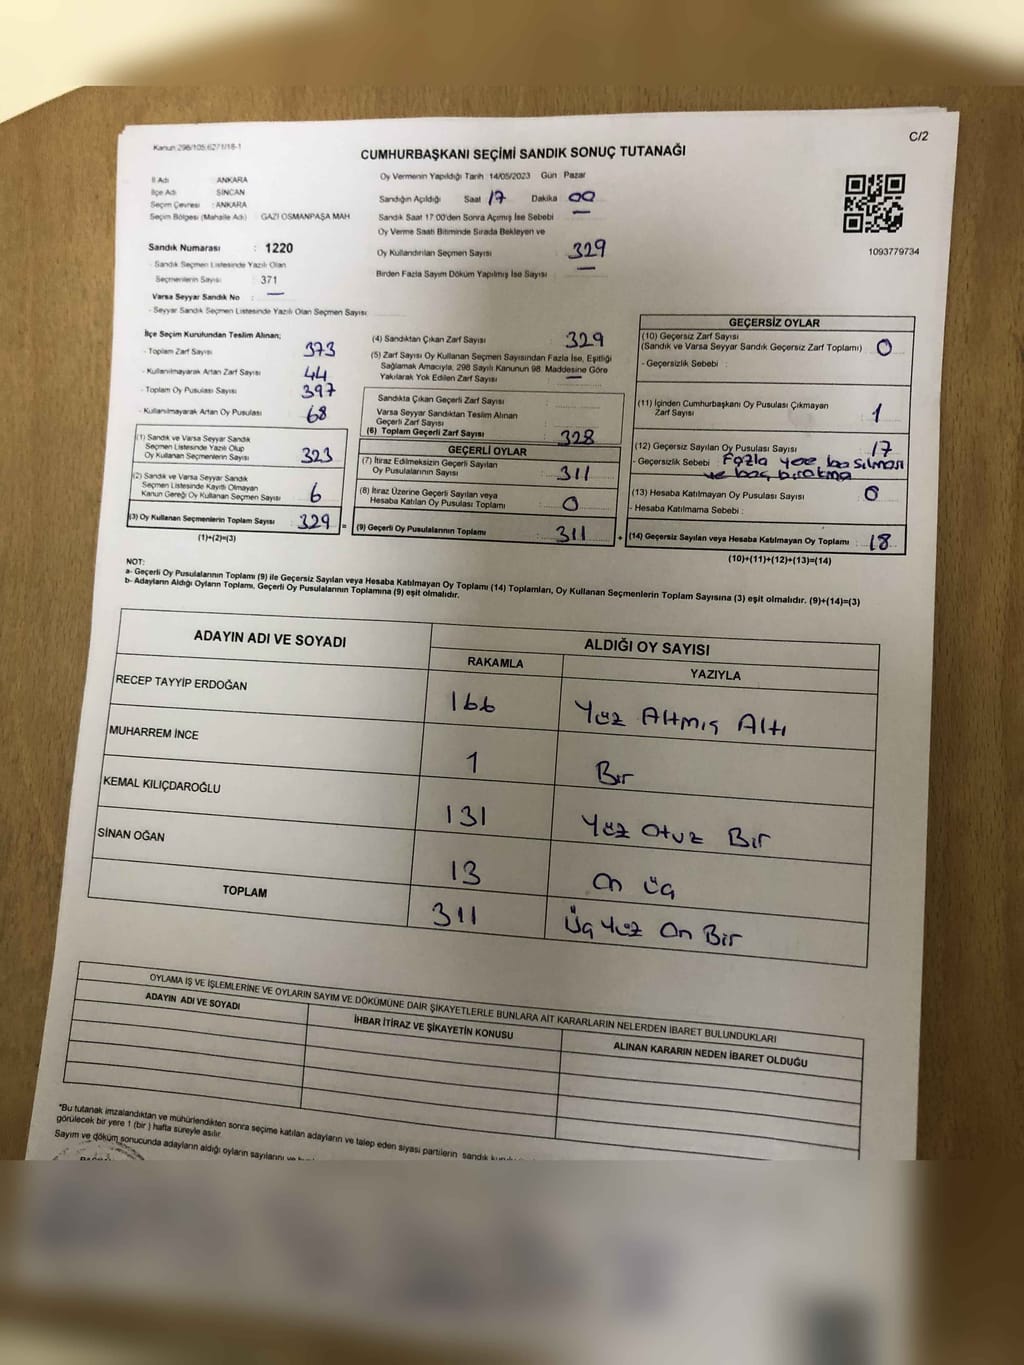 Kanun:298/105,6271/18-1
C/2
CUMHURBAŞKANI SEÇİMİ SANDIK SONUÇ TUTANAĞI
İl Adı ANKARA
İlçe Adı SİNCAN
Seçim Çevresi : ANKARA
Seçim Bölgesi (Mahalle Adı) GAZİ OSMANPAŞA MAH
Sandık Numarası : 1220
- Sandık Seçmen Listesinde Yazılı Olan
Seçmenlerin Sayısı : 371
Varsa Seyyar Sandık No : —
- Seyyar Sandık Seçmen Listesinde Yazılı Olan Seçmen Sayısı:
Oy Vermenin Yapıldığı Tarih 14/05/2023 Gün Pazar
Sandığın Açıldığı Saat 17 Dakika 00
Sandık Saat 17:00'den Sonra Açımış İse Sebebi —
Oy Verme Saati Bitiminde Sırada Bekleyen ve
Oy Kullandırılan Seçmen Sayısı : 329
Birden Fazla Sayım Döküm Yapılmış İse Sayısı : —
1093779734
İlçe Seçim Kurulundan Teslim Alınan;
- Toplam Zarf Sayısı : 373
- Kullanılmayarak Artan Zarf Sayısı : 44
- Toplam Oy Pusulası Sayısı : 397
- Kullanılmayarak Artan Oy Pusulası : 68
(1) Sandık ve Varsa Seyyar Sandık
Seçmen Listesinde Yazılı Olup
Oy Kullananların Sayısı : 323
(2) Sandık ve Varsa Seyyar Sandık
Seçmen Listesinde Kayıtlı Olmayan
Kanun Gereği Oy Kullanan Seçmen Sayısı : 6
(3) Oy Kullanan Seçmenlerin Toplam Sayısı : 329 =
(1)+(2)=(3)
(4) Sandıktan Çıkan Zarf Sayısı : 329
(5) Zarf Sayısı Oy Kullanan Seçmen Sayısından Fazla İse, Eşitliği
Sağlamak Amacıyla, 298 Sayılı Kanunun 98. Maddesine Göre
Yakılarak Yok Edilen Zarf Sayısı : —
Sandıkta Çıkan Geçerli Zarf Sayısı :
Varsa Seyyar Sandıktan Teslim Alınan
Geçerli Zarf Sayısı :
(6) Toplam Geçerli Zarf Sayısı : 328
GEÇERLİ OYLAR
(7) İtiraz Edilmeksizin Geçerli Sayılan
Oy Pusulalarının Sayısı : 311
(8) İtiraz Üzerine Geçerli Sayılan veya
Hesaba Katılan Oy Pusulaları Toplamı : 0
(9) Geçerli Oy Pusulalarının Toplamı : 311 +
GEÇERSİZ OYLAR
(10) Geçersiz Zarf Sayısı
(Sandık ve Varsa Seyyar Sandık Geçersiz Zarf Toplamı) : 0
- Geçersizlik Sebebi :
(11) İçinden Cumhurbaşkanı Oy Pusulası Çıkmayan
Zarf Sayısı : 1
(12) Geçersiz Sayılan Oy Pusulası Sayısı : 17
- Geçersizlik Sebebi Fazla yere basılması
ve boş bırakma
(13) Hesaba Katılmayan Oy Pusulası Sayısı : 0
- Hesaba Katılmama Sebebi :
(14) Geçersiz Sayılan veya Hesaba Katılmayan Oy Toplamı : 18
(10)+(11)+(12)+(13)=(14)
NOT:
a- Geçerli Oy Pusulalarının Toplamı (9) ile Geçersiz Sayılan veya Hesaba Katılmayan Oy Toplamı (14) Toplamları, Oy Kullanan Seçmenlerin Toplam Sayısına (3) eşit olmalıdır. (9)+(14)=(3)
b- Adayların Aldığı Oyların Toplamı, Geçerli Oy Pusulalarının Toplamına (9) eşit olmalıdır.
ADAYIN ADI VE SOYADI ALDIĞI OY SAYISI
RAKAMLA YAZIYLA
RECEP TAYYİP ERDOĞAN 166 Yüz Altmış Altı
MUHARREM İNCE 1 Bir
KEMAL KILIÇDAROĞLU 131 Yüz Otuz Bir
SİNAN OĞAN 13 On üç
TOPLAM 311 Üç Yüz On Bir
OYLAMA İŞ VE İŞLEMLERİNE VE OYLARIN SAYIM VE DÖKÜMÜNE DAİR ŞİKAYETLERLE BUNLARA AİT KARARLARIN NELERDEN İBARET BULUNDUKLARI
ADAYIN ADI VE SOYADI İHBAR İTİRAZ VE ŞİKAYETİN KONUSU ALINAN KARARIN NEDEN İBARET OLDUĞU
*Bu tutanak imzalandıktan ve mühürlendikten sonra seçime katılan adayların ve talep eden siyasi partilerin sandık
görülecek bir yere 1 (bir ) hafta süreyle asılır.
Sayım ve döküm sonucunda adayların aldığı oyların sayılarını